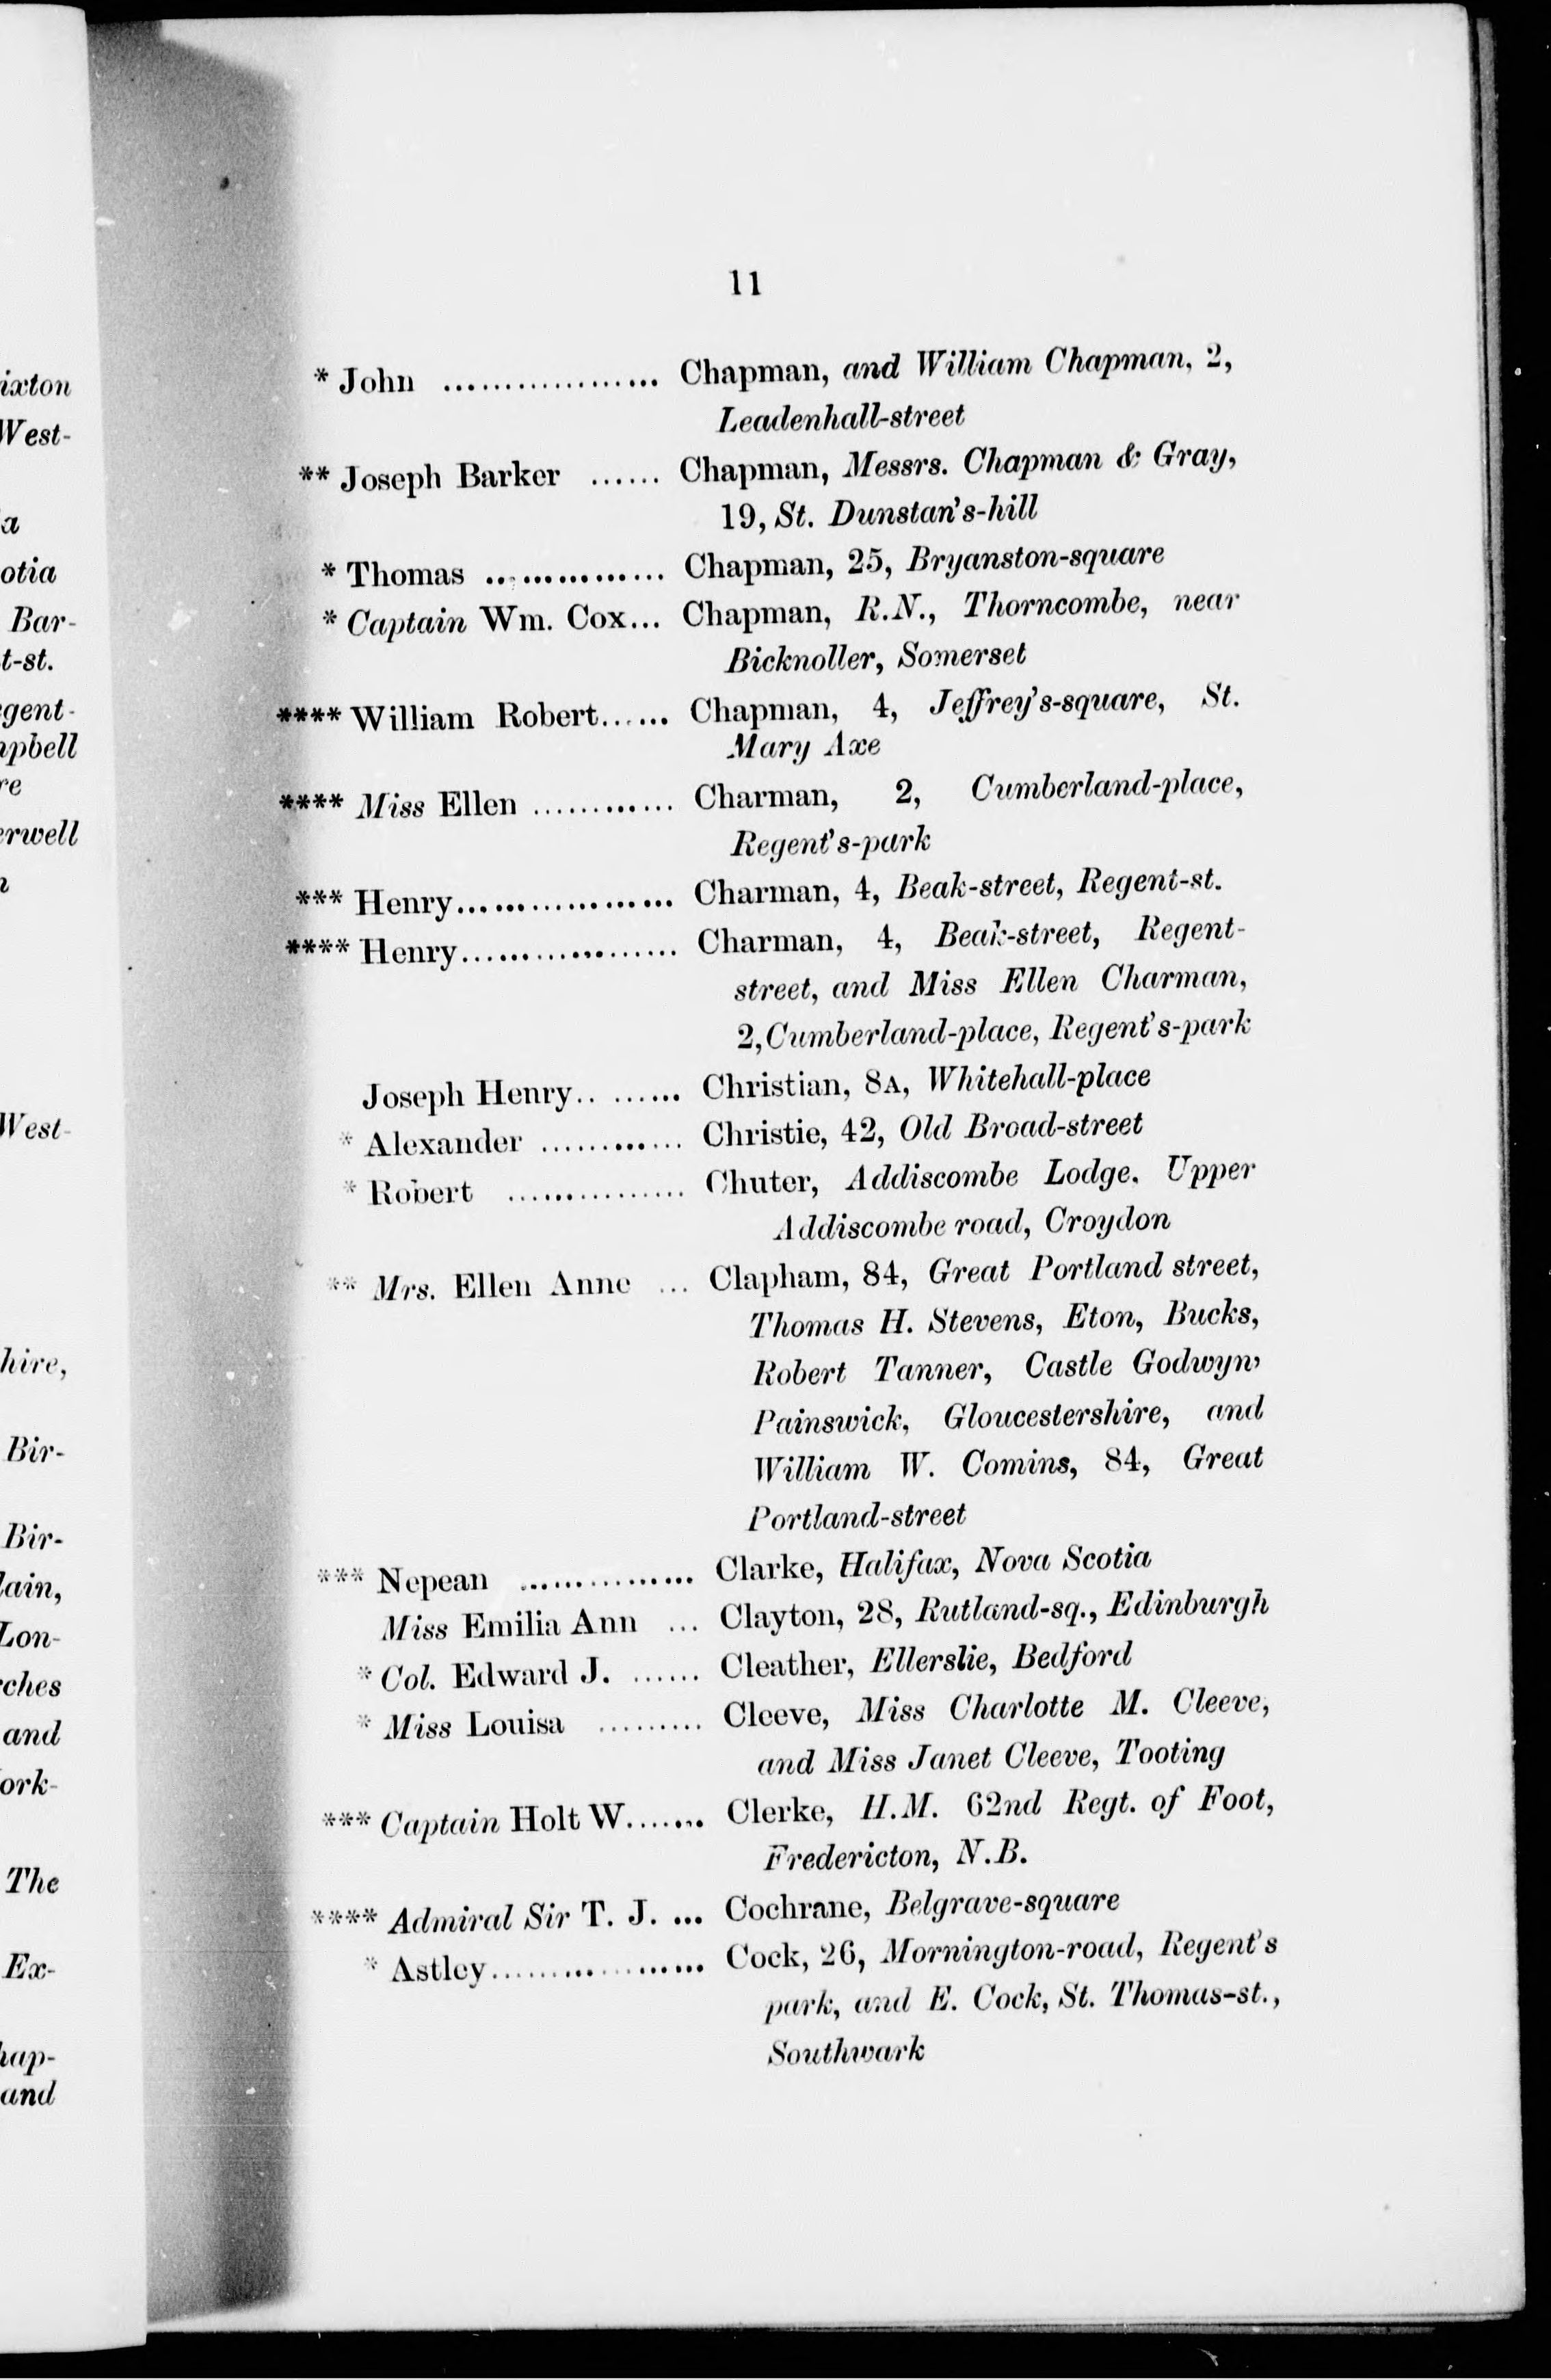 11
* John .................. Chapman, and William Chapman, 2,
Leadenhall-street
** Joseph Barker ...... Chapman, Messrs. Chapman & Gray,
19, St. Dunstan's-hill
* Thomas ............... Chapman, 25, Bryanston-square
* Captain Wm. Cox... Chapman, R.N., Thorncombe, near
Bicknoller, Somerset
**** William Robert...... Chapman, 4, Jeffrey's-square, St.
Mary Axe
**** Miss Ellen ............ Charman, 2, Cumberland-place,
Regent's-park
*** Henry.................. Charman, 4, Beak-street, Regent-st.
**** Henry.................. Charman, 4, Beak-street, Regent-
street, and Miss Ellen Charman,
2, Cumberland-place, Regent's-park
Joseph Henry......... Christian, 8A, Whitehall-place
* Alexander ............ Christie, 42, Old Broad-street
* Robert ............... Chuter, Addiscombe Lodge, Upper
Addiscombe road, Croydon
** Mrs. Ellen Anne ... Clapham, 84, Great Portland street,
Thomas H. Stevens, Eton, Bucks,
Robert Tanner, Castle Godwyn,
Painswick, Gloucestershire, and
William W. Comins, 84, Great
Portland-street
*** Nepean ............... Clarke, Halifax, Nova Scotia
Miss Emilia Ann ... Clayton, 28, Rutland-sq., Edinburgh
* Col. Edward J. ...... Cleather, Ellerslie, Bedford
* Miss Louisa ......... Cleeve, Miss Charlotte M. Cleeve,
and Miss Janet Cleeve, Tooting
*** Captain Holt W....... Clerke, H.M. 62nd Regt. of Foot,
Fredericton, N.B.
**** Admiral Sir T. J. ... Cochrane, Belgrave-square
* Astley.................. Cock, 26, Mornington-road, Regent's
park, and E. Cock, St. Thomas-st.,
Southwark